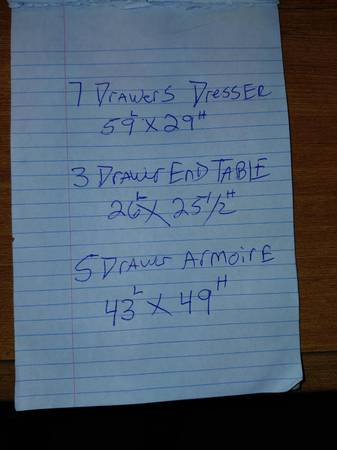 7 DRAWERS DRESSER
59L X 29H
3 DRAWER END TABLE
26L X 25 1/2H
5 DRAWER ARMOIRE
43L X 49H